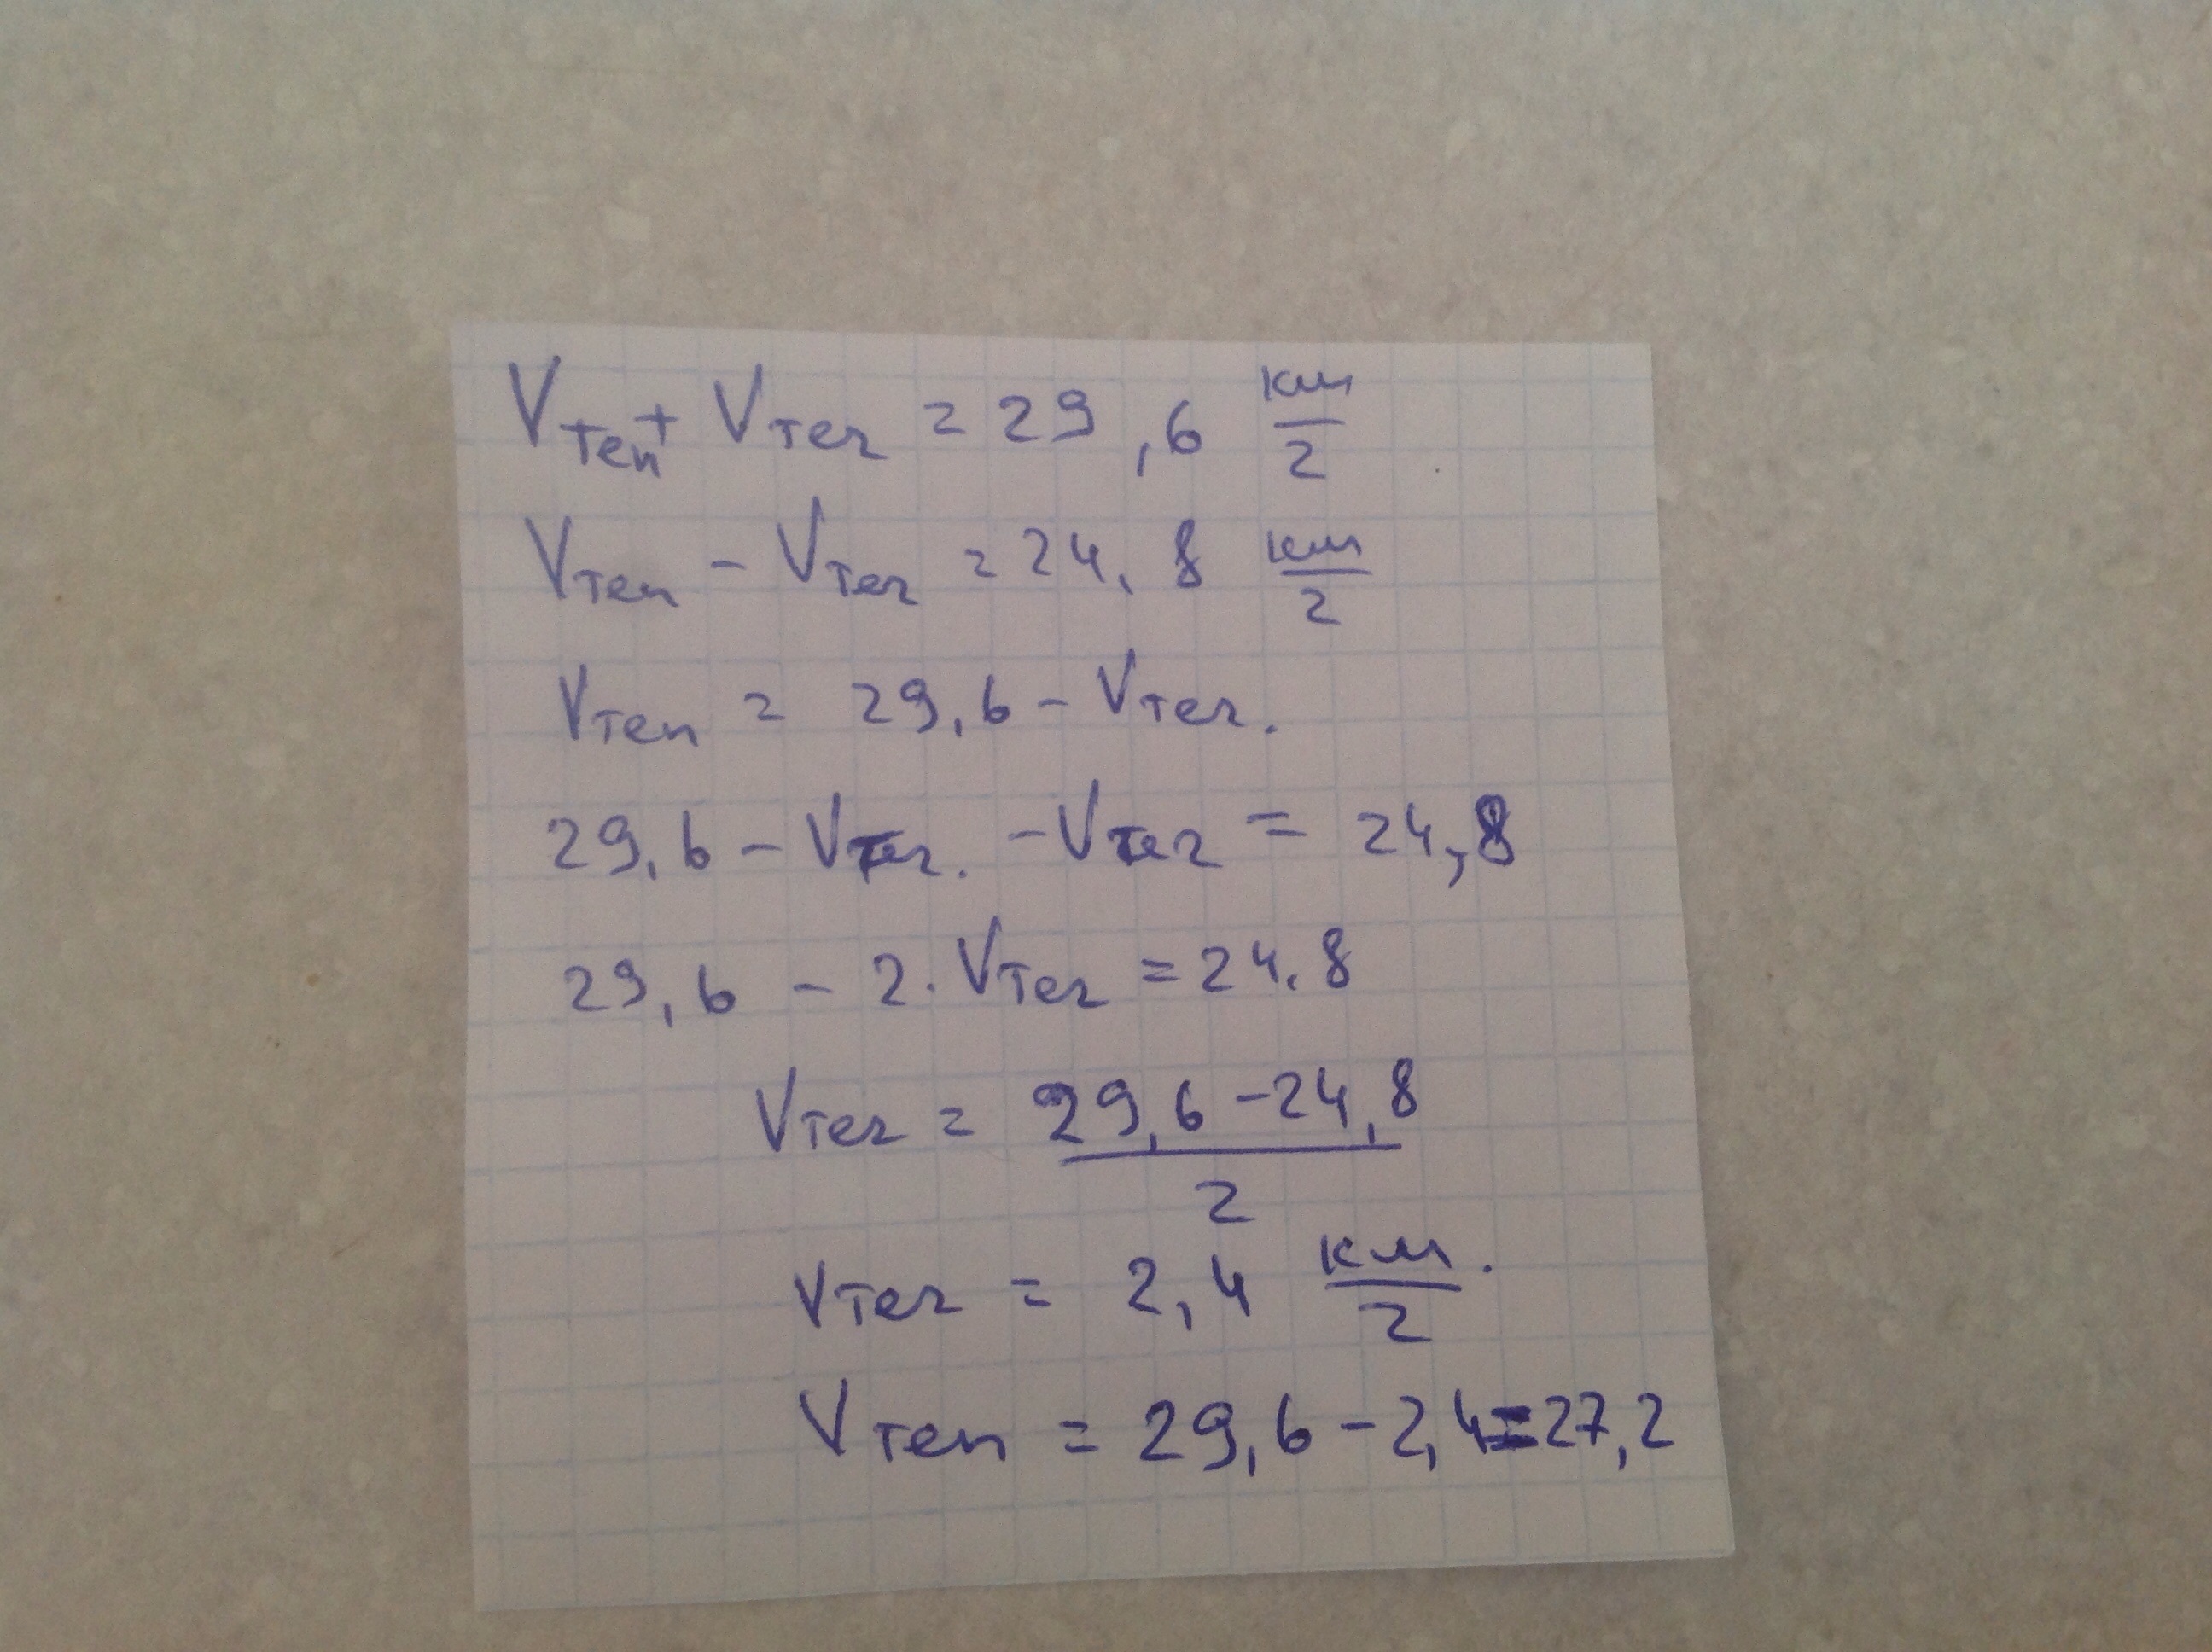 Vтеп + Vтеч = 29,6 км/ч
Vтеп - Vтеч = 24,8 км/ч
Vтеп = 29,6 - Vтеч.
29,6 - Vтеч. - Vтеч = 24,8
29,6 - 2·Vтеч = 24,8
Vтеч = (29,6 - 24,8)/2
Vтеч = 2,4 км/ч.
Vтеп = 29,6 - 2,4 = 27,2